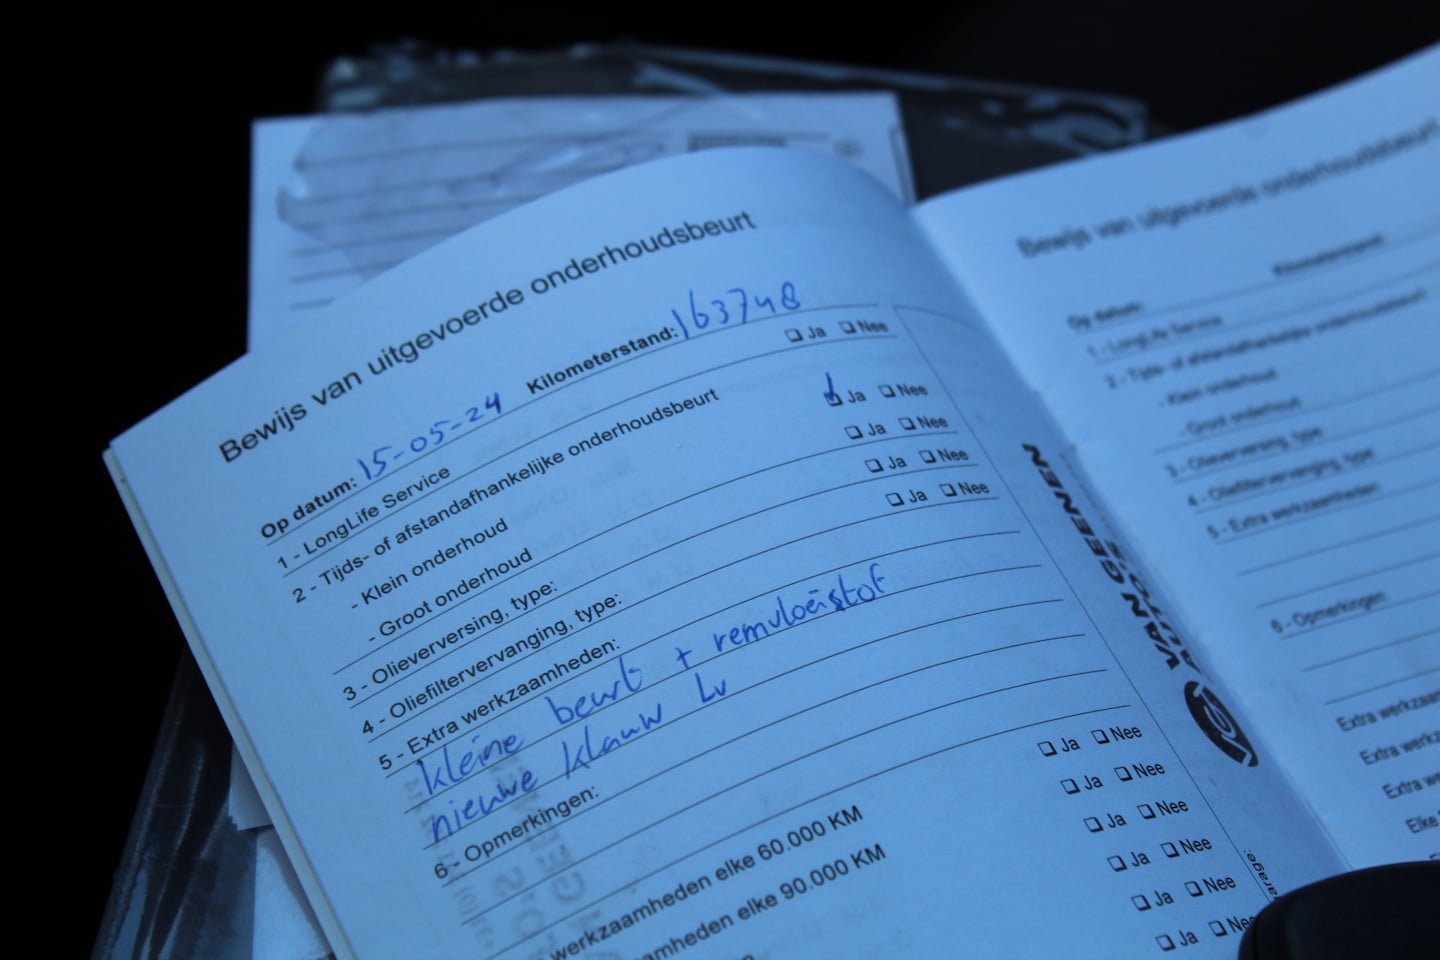 Bewijs van uitgevoerde onderhoudsbeurt
Op datum: 15-05-24 Kilometerstand: 163748
1 - LongLife Service ❏ Ja ❏ Nee
2 - Tijds- of afstandafhankelijke onderhoudsbeurt ❏ Ja ❏ Nee
- Klein onderhoud ❏ Ja ❏ Nee
- Groot onderhoud ❏ Ja ❏ Nee
3 - Olieverversing, type: ❏ Ja ❏ Nee
4 - Oliefiltervervanging, type:
5 - Extra werkzaamheden:
kleine beurt + remvloeistof
nieuwe klauw Lv
6 - Opmerkingen:
werkzaamheden elke 60.000 KM ❏ Ja ❏ Nee
amheden elke 90.000 KM ❏ Ja ❏ Nee
❏ Ja ❏ Nee
❏ Ja ❏ Nee
❏ Ja ❏ Nee
❏ Ja ❏ Nee
VAN GEENEN
AUTO'S
arage:
Bewijs van uitgevoerde onderhoudsbeurt
Op datum: Kilometerstand:
1 - LongLife Service
2 - Tijds- of afstandafhankelijke onderhoudsbeurt
- Klein onderhoud
- Groot onderhoud
3 - Olieverversing, type
4 - Oliefiltervervanging, type
5 - Extra werkzaamheden:
6 - Opmerkingen:
Extra werkzaam
Extra werkz
Extra we
Elke